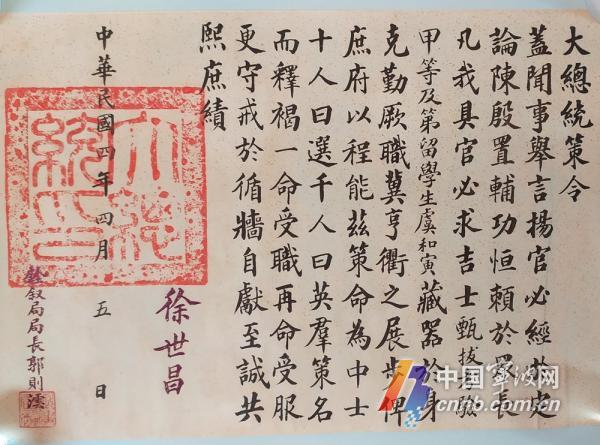 大總統策令
蓋聞事舉言揚官必經於吏
論陳殷置輔功恒賴於眾長
凡我具官必求吉士甄拔考驗
甲等及第留學生虞和寅藏器於身
克勤厥職冀亨衢之展步俾
庶府以程能茲策命為中士
十人曰選千人曰英羣策名
而釋褐一命受職再命受服
更守戒於循牆自獻至誠共
熙庶績
大總統印
中華民國四年四月五日
徐世昌
銓敘局局長郭則澐
中国宁波网
cnnb.com.cn